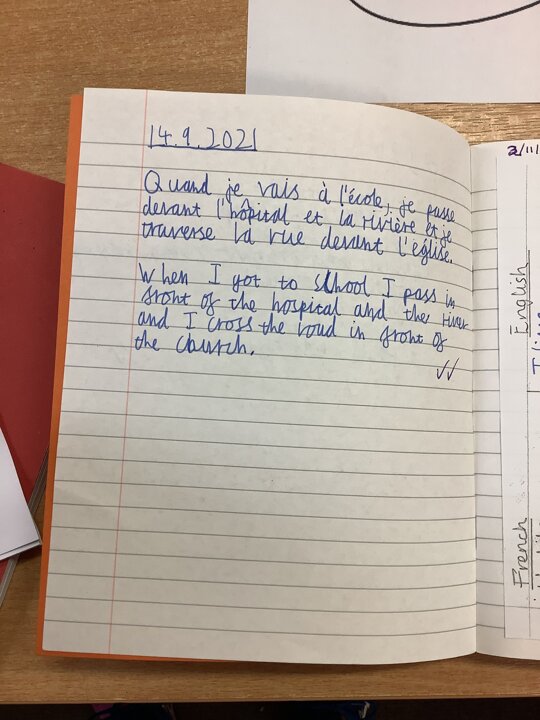 14.9.2021
Quand je vais à l'école, je passe
devant l'hôpital et la rivière et je
traverse la rue devant l'église.
When I got to school I pass in
front of the hospital and the river
and I cross the road in front of
the church.
English
French